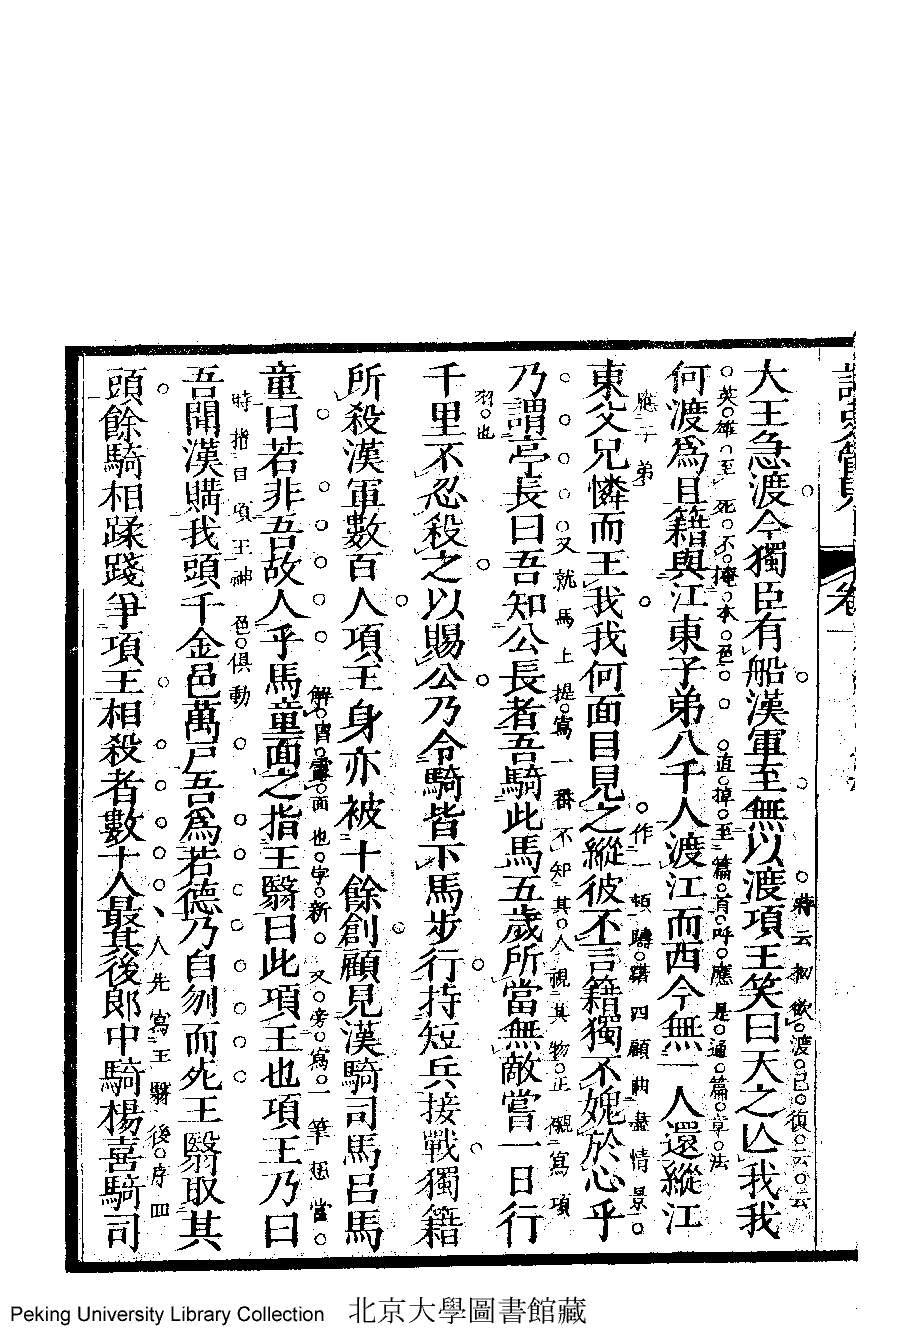 大王急渡今獨臣有船漢軍至無以渡項王笑曰天之亾我我
蔣云初欲渡已復云云
何渡爲且籍與江東子弟八千人渡江而西今無一人還縱江
英雄至死不掩本色 直掉至篇首呼應是通篇章法
東父兄憐而王我我何面目見之縱彼不言籍獨不媿於心乎
應子弟 作一頓躊躇四顧曲盡情景
乃謂亭長曰吾知公長者吾騎此馬五歲所當無敵嘗一日行
又就馬上提寫一番不知其人視其物正襯寫項
千里不忍殺之以賜公乃令騎皆下馬步行持短兵接戰獨籍
羽也
所殺漢軍數百人項王身亦被十餘創顧見漢騎司馬呂馬
童曰若非吾故人乎馬童面之指王翳曰此項王也項王乃曰
面也字新又旁寫一筆想當
吾聞漢購我頭千金邑萬戸吾爲若德乃自刎而死王翳取其
時指目項王神色俱動
頭餘騎相蹂踐爭項王相殺者數十人最其後郎中騎楊喜騎司
人先寫王翳後序四
Peking University Library Collection 北京大學圖書館藏